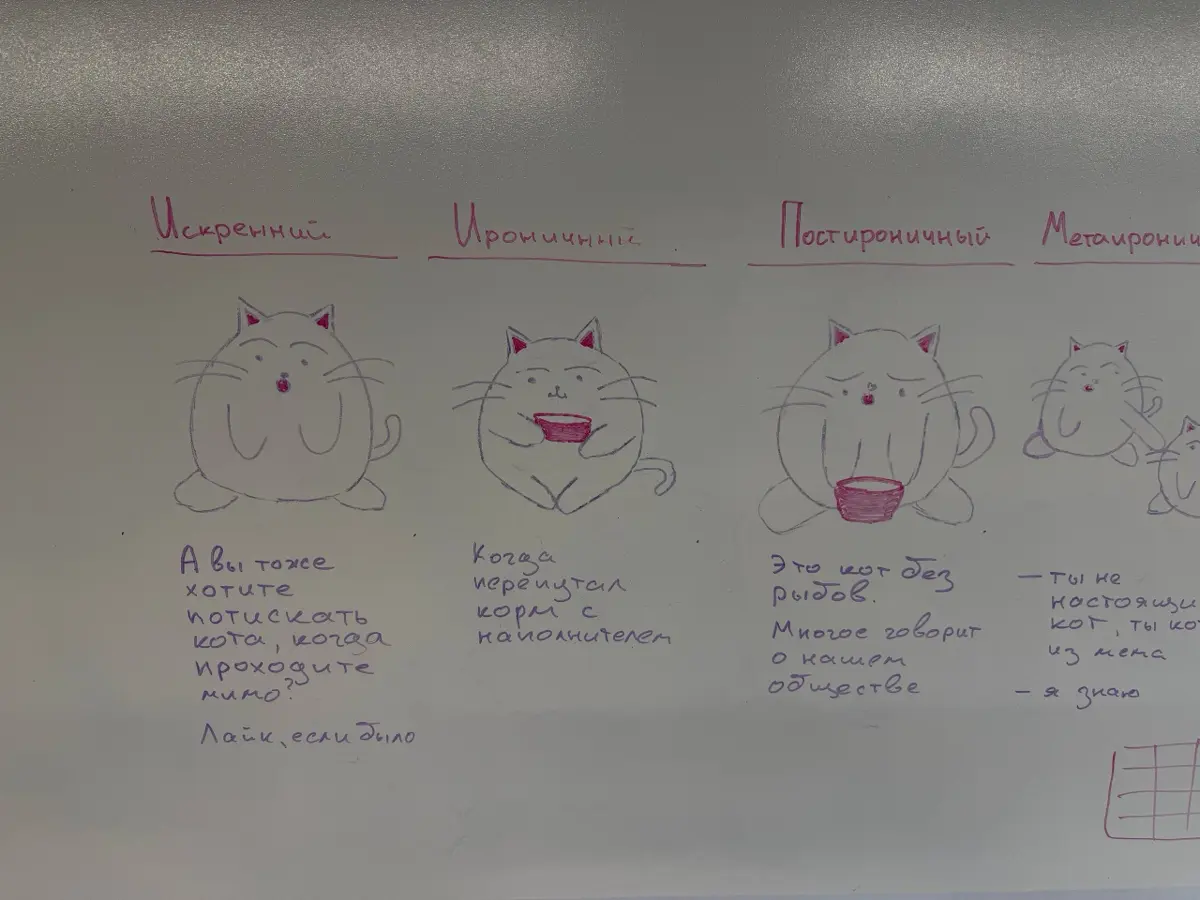 Искренний
А вы тоже
хотите
потискать
кота, когда
проходите
мимо?
Лайк, если было
Ироничный
Когда
перепутал
корм с
наполнителем
Постироничный
Это кот без
рыбов.
Многое говорит
о нашем
обществе
Метаиронич
— ты не
настоящи
кот, ты ко
из мема
— я знаю